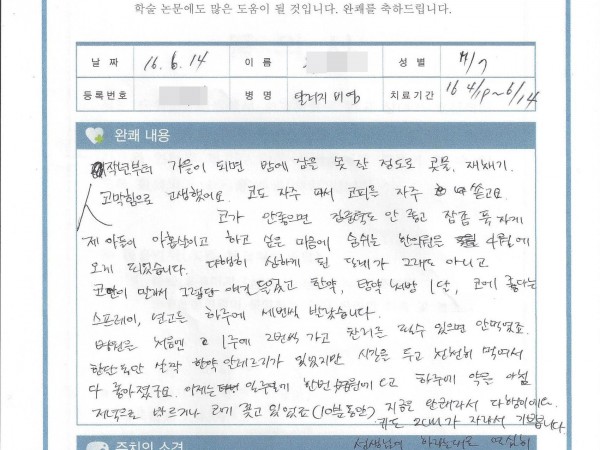 학술 논문에도 많은 도움이 될 것입니다. 완쾌를 축하드립니다.
날 짜 16. 6. 14 이 름 성 별 M/9
등록번호 병 명 치료기간 16 4/19~6/14
완쾌 내용
작년부터 가을이 되면 밤에 잠을 못 잘 정도로 콧물, 재채기.
코막힘으로 고생했어요. 코도 자주 파서 코피를 자주 쏟고요.
코가 안좋으면 집중력도 안 좋고 잠좀 푹 자게
제 아들이 아홉살이고 하고 싶은 마음에 숨쉬는 한의원을 4월에
오게 되었습니다. 다행히 심하게 된 그래도 아니고
코 한약, 1단, 코에 좋다는
스프레이, 연고등 하루에 세번씩 발랐습니다.
병원은 처음엔 1주에 2번씩 가고 찬거를 안먹었죠.
한달 동안 살짝 한약 있었지만 시간을 두고 천천히 먹여서
다 좋아졌구요. 이제는 일주일에 한번 오고 하루에 약은 아침
저녁으로 바르거나 꽂고 있었죠 (10분동안) 지금은 완쾌라서 다행이예요.
키도 2cm가 자라서 기쁩니다.
주치의 소견
선생님이 열심히